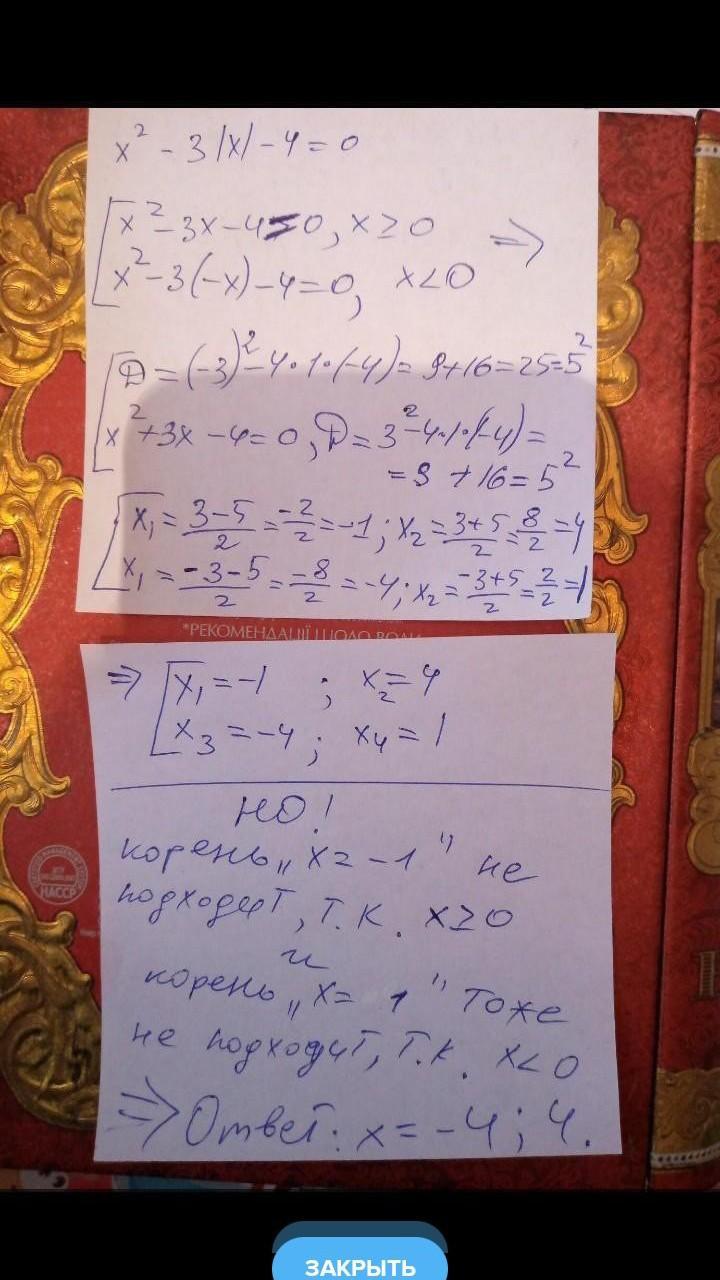 x² - 3|x| - 4 = 0
x² - 3x - 4 = 0, x ≥ 0 ⇒
x² - 3(-x) - 4 = 0, x < 0
D = (-3)² - 4·1·(-4) = 9+16 = 25 = 5²
x² + 3x - 4 = 0, D = 3² - 4·1·(-4) =
= 9 + 16 = 5²
x₁ = (3-5)/2 = -2/2 = -1; x₂ = (3+5)/2 = 8/2 = 4
x₁ = (-3-5)/2 = -8/2 = -4; x₂ = (-3+5)/2 = 2/2 = 1
*РЕКОМЕНДАЦІЇ ЩОДО
⇒ x₁ = -1 ; x₂ = 4
x₃ = -4 ; x₄ = 1
НО!
корень „x = -1" не
подходит, т.к. x ≥ 0
и
корень „x = 1" тоже
не подходит, т.к. x < 0
⇒ Ответ: x = -4; 4.
НАССР
ЗАКРЫТЬ